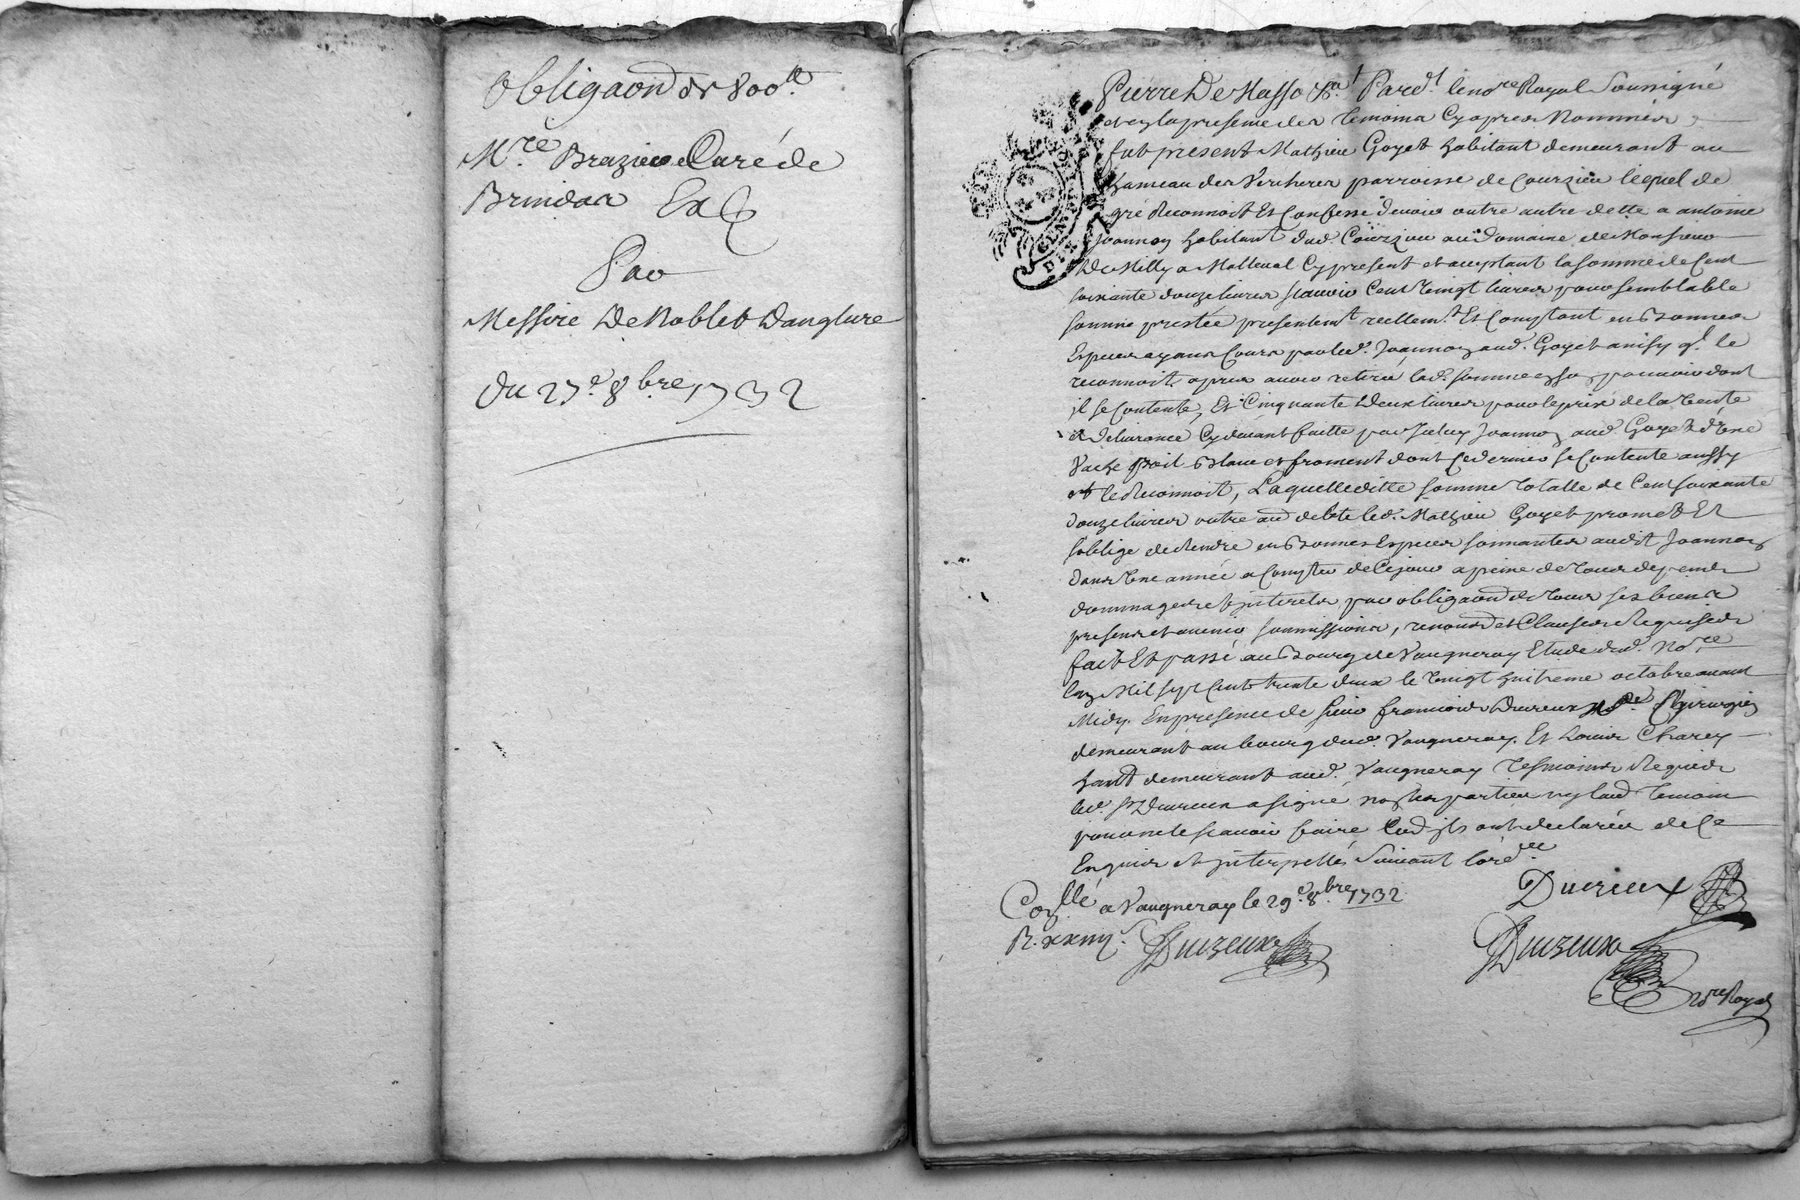 Obligaon de 800 ll
Mre Brazier Curé de
Brindas Ex
Par
Messire De Noblet Danglure
Du 27e 8bre 1732
Pierre De Masso &a Pardt le nore Royal Soussigné
et en la presence des temoins Cy apres Nommés
fut present Mathieu Goyet habitant demeurant au
hameau des Vercheres parroisse de Courzieu lequel de
gré Reconnoit Et Confesse devoir outre autre dette a antoine
Joannon habitant dud. Courzieu au domaine de Monsieur
De Milly a Malleval Cy present et acceptant la somme de Cent
soixante douze livres scavoir Cent vingt livres pour semblable
somme prestée presentemt reellemt Et Comptant en Bonnes
Especes ayans Cours par led. Joannon aud. Goyet ainsy ql. le
reconnoit apres avoir retiré lad. somme a son pouvoir dont
il se Contente, Et Cinquante Deux livres pour le prix de la vente
et delivrance Cy devant faitte par Joannon aud. Goyet d'une
Vache poil Blanc et froment dont Ce dernier se Contente aussy
et le Reconnoit, Laquelleditte somme totalle de Cent soixante
douze livres outre autre dette led. Mathieu Goyet promet Et
s'oblige de Rendre en Bonnes Especes sonnantes audit Joannon
dans une année a Compter de Ce jour a peine de tous depends
dommages et interets, par obligaon de tous ses biens
presens et avenir soumissions, renons et Clauses Requises
fait Et passé au Bourg de Vaugneray Etude dud. Nore
L'an Mil sept Cent trente deux le vingt huitieme octobre avant
Midy. En presence de sieur francois Ducreux Me Chirurgien
demeurant au bourg dud. Vaugneray. Et Louis Charey
habt demeurant aud. Vaugneray tesmoins Requis
led. sr Ducreux a signé non les parties ny laud. temoin
pour ne le scavoir faire Comme ils ont declarés de Ce
Enquis et interpellés Suivant l'ordce
Ducreux
Conllé a Vaugneray le 29e 8bre 1732
R. xxiiij s Ducreux
Ducreux
nore Royal